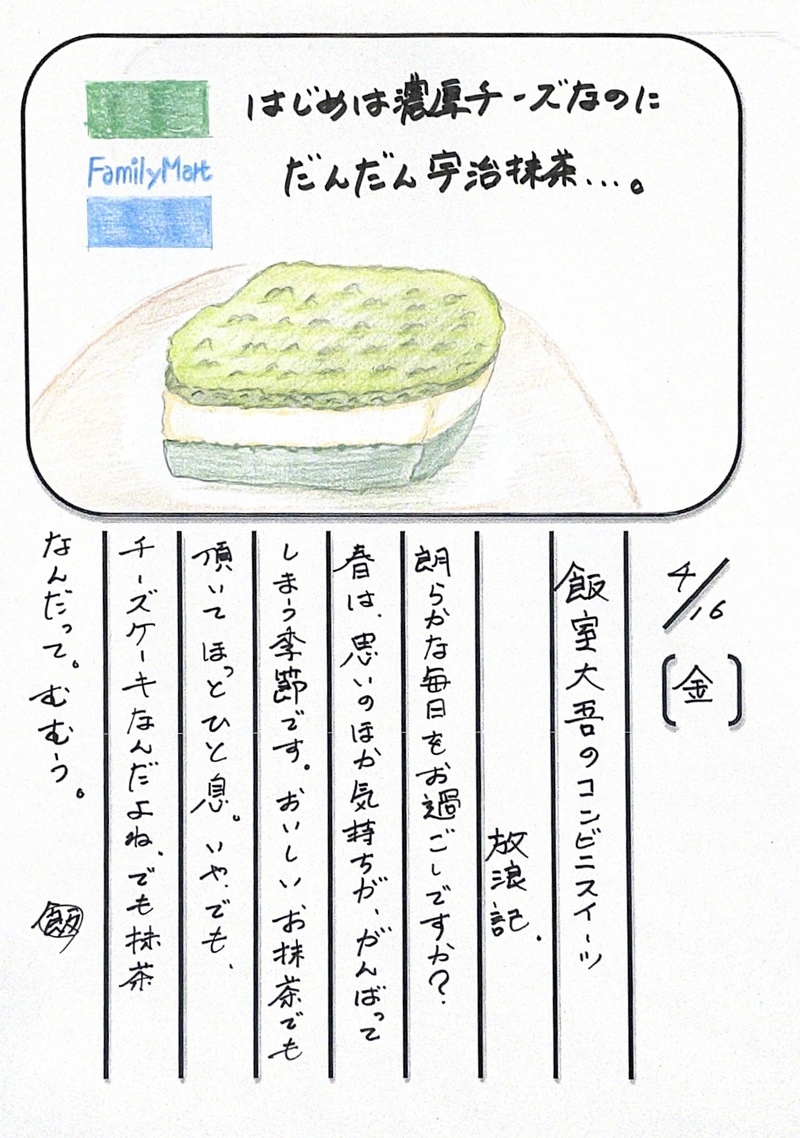 はじめは濃厚チーズなのに
だんだん宇治抹茶…。
FamilyMart
4/16
[金]
飯室大吾のコンビニスイーツ
放浪記.
朗らかな毎日をお過ごしですか?
春は、思いのほか気持ちが、がんばって
しまう季節です。おいしいお抹茶でも
頂いてほっとひと息。いや、でも、
チーズケーキなんだよね、でも抹茶
なんだって。むむう。
飯